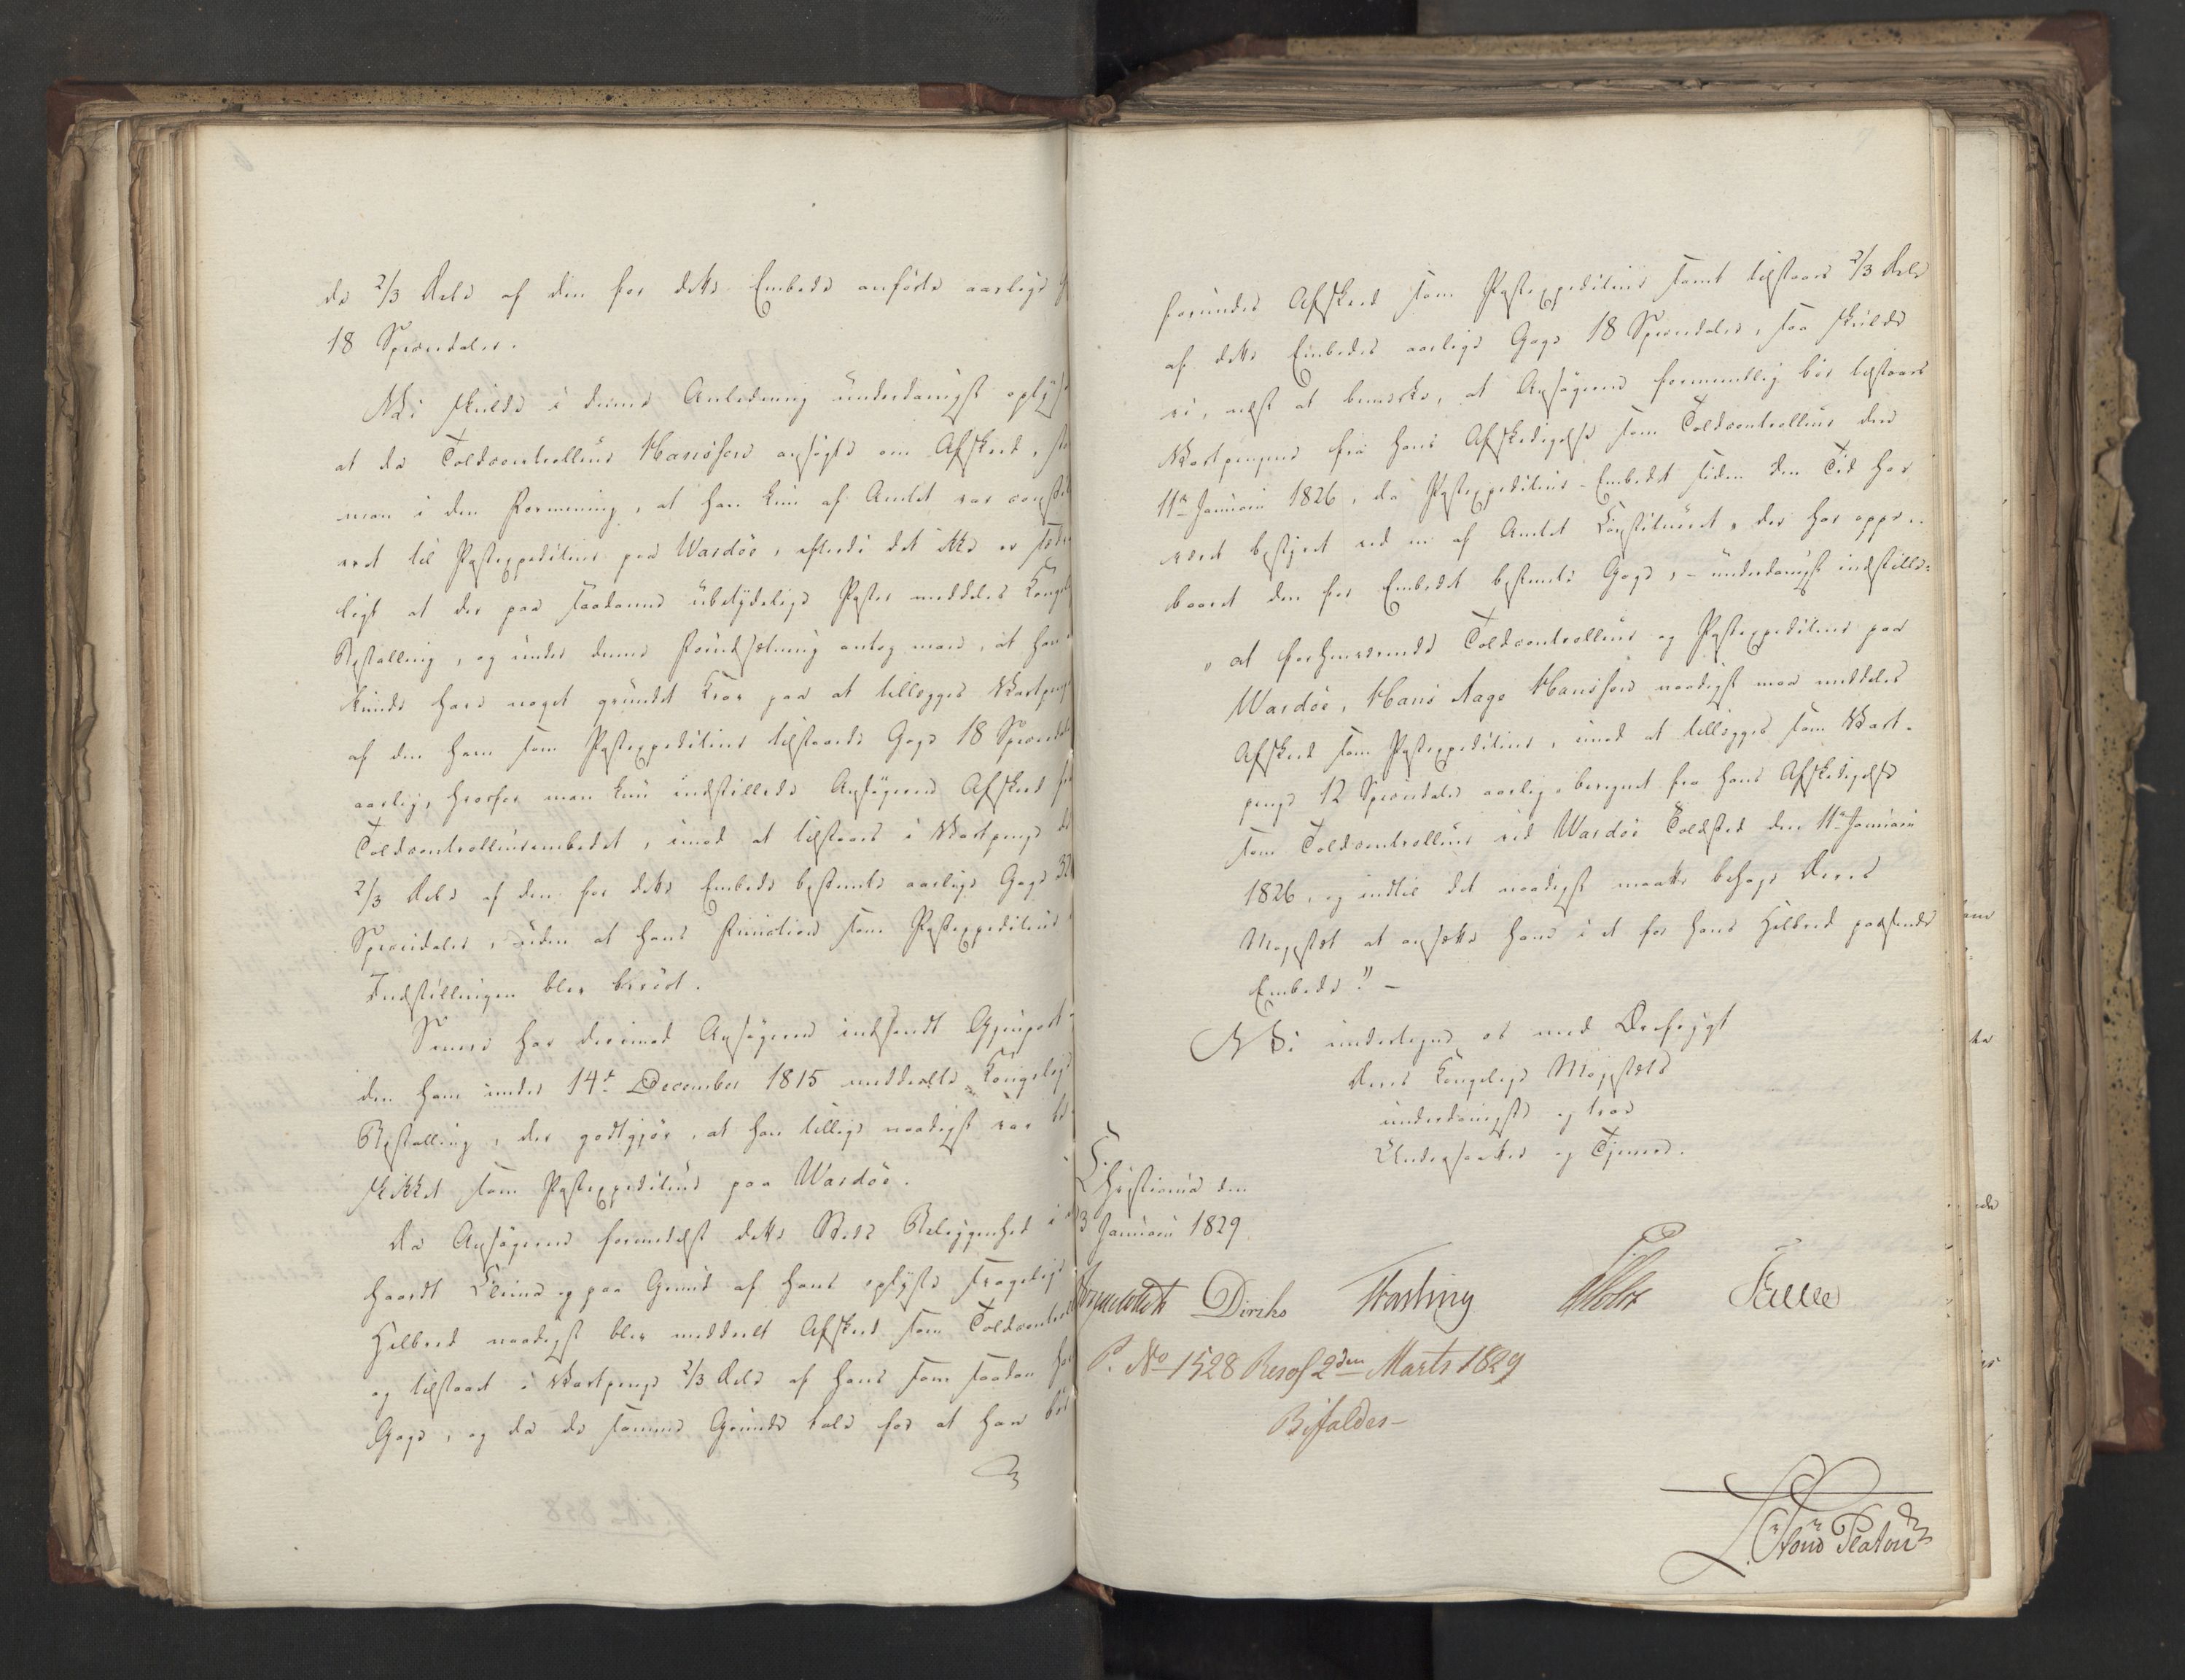 de 2/3 Dele af den for dette Embede anførte aarlige
18 Speciedaler.
Vi skulde i denne Anledning underdanigst oplyse
at da Toldcontrolleur Hansson ansøgte om Afsked,
man i den Formening, at han kun af Amtet var
ret til Postexpediteur paa Wardøe, efterdi det ikke er
ligt at der paa saadanne ubetydelige Poster meddeles
Bestalling, og under denne Forudsætning antog man, at han
kunde have noget grundet Krav paa at tillægges
af den ham som Postexpediteur tilstaaede Gage 18
aarlig, hvorfor man kun indstillede Ansøgerens Afsked
Toldcontrolleurembedet, imod at tilstaaes i Vartpenge
2/3 Dele af den for dette Embede bestemte aarlige Gage
Speciedaler, uden at hans Function som Postexpediteur
Indstillingen blev berört.
Senere har derimod Ansøgeren indsendt Gjenpart
den ham under 14de December 1815 meddeelte Kongelige
Bestalling, der godtgjør, at han tillige naadigst var
skikket som Postexpediteur paa Wardøe.
Da Ansøgeren formedelst dette Steds Beliggenhed i
haardt Clima og paa Grund af hans oplyste svagelige
Helbred naadigst blev meddeelt Afsked som
og tilstaaet i Vartpenge 2/3 Dele af hans som saadan
Gage, og da de samme Grunde tale for at han bör
forundes Afsked som Postexpediteur samt tilstaaes 2/3 Dele
af dette Embedes aarlige Gage 18 Speciedaler, saa skulde
vi, næst at bemærke, at Ansøgeren formeentlig bör tilstaaes
Vartpengene fra hans Afskedigelse som Toldcontrolleur den
11te Januarii 1826, da Postexpediteur-Embedet siden den Tid har
været bestyret ved en af Amtet Constitueret, der har oppe-
baaret den for Embedet bestemte Gage, - underdanigst indstille:
"at forhenværende Toldcontrolleur og Postexpediteur paa
Wardøe, Hans Aage Hansson naadigst maa meddeles
Afsked som Postexpediteur, imod at tillægges som Vart-
penge 12 Speciedaler aarlig beregnet fra hans Afskedigelse
som Toldcontrolleur ved Wardøe Toldsted den 11te Januarii
1826, og indtil det naadigst maatte behage Deres
Majestæt at ansætte ham i et for hans Helbred passende
Embede." -
Vi undertegne os med Ærefrygt
Deres Kongelige Majestæts
underdanigste og troe
Undersaatter og Tjenere.
Christiania den
3 Januarii 1829.
Diriks Fasting Holst
P. No 1528 Resol 2den Marts 1829
Bifaldes-